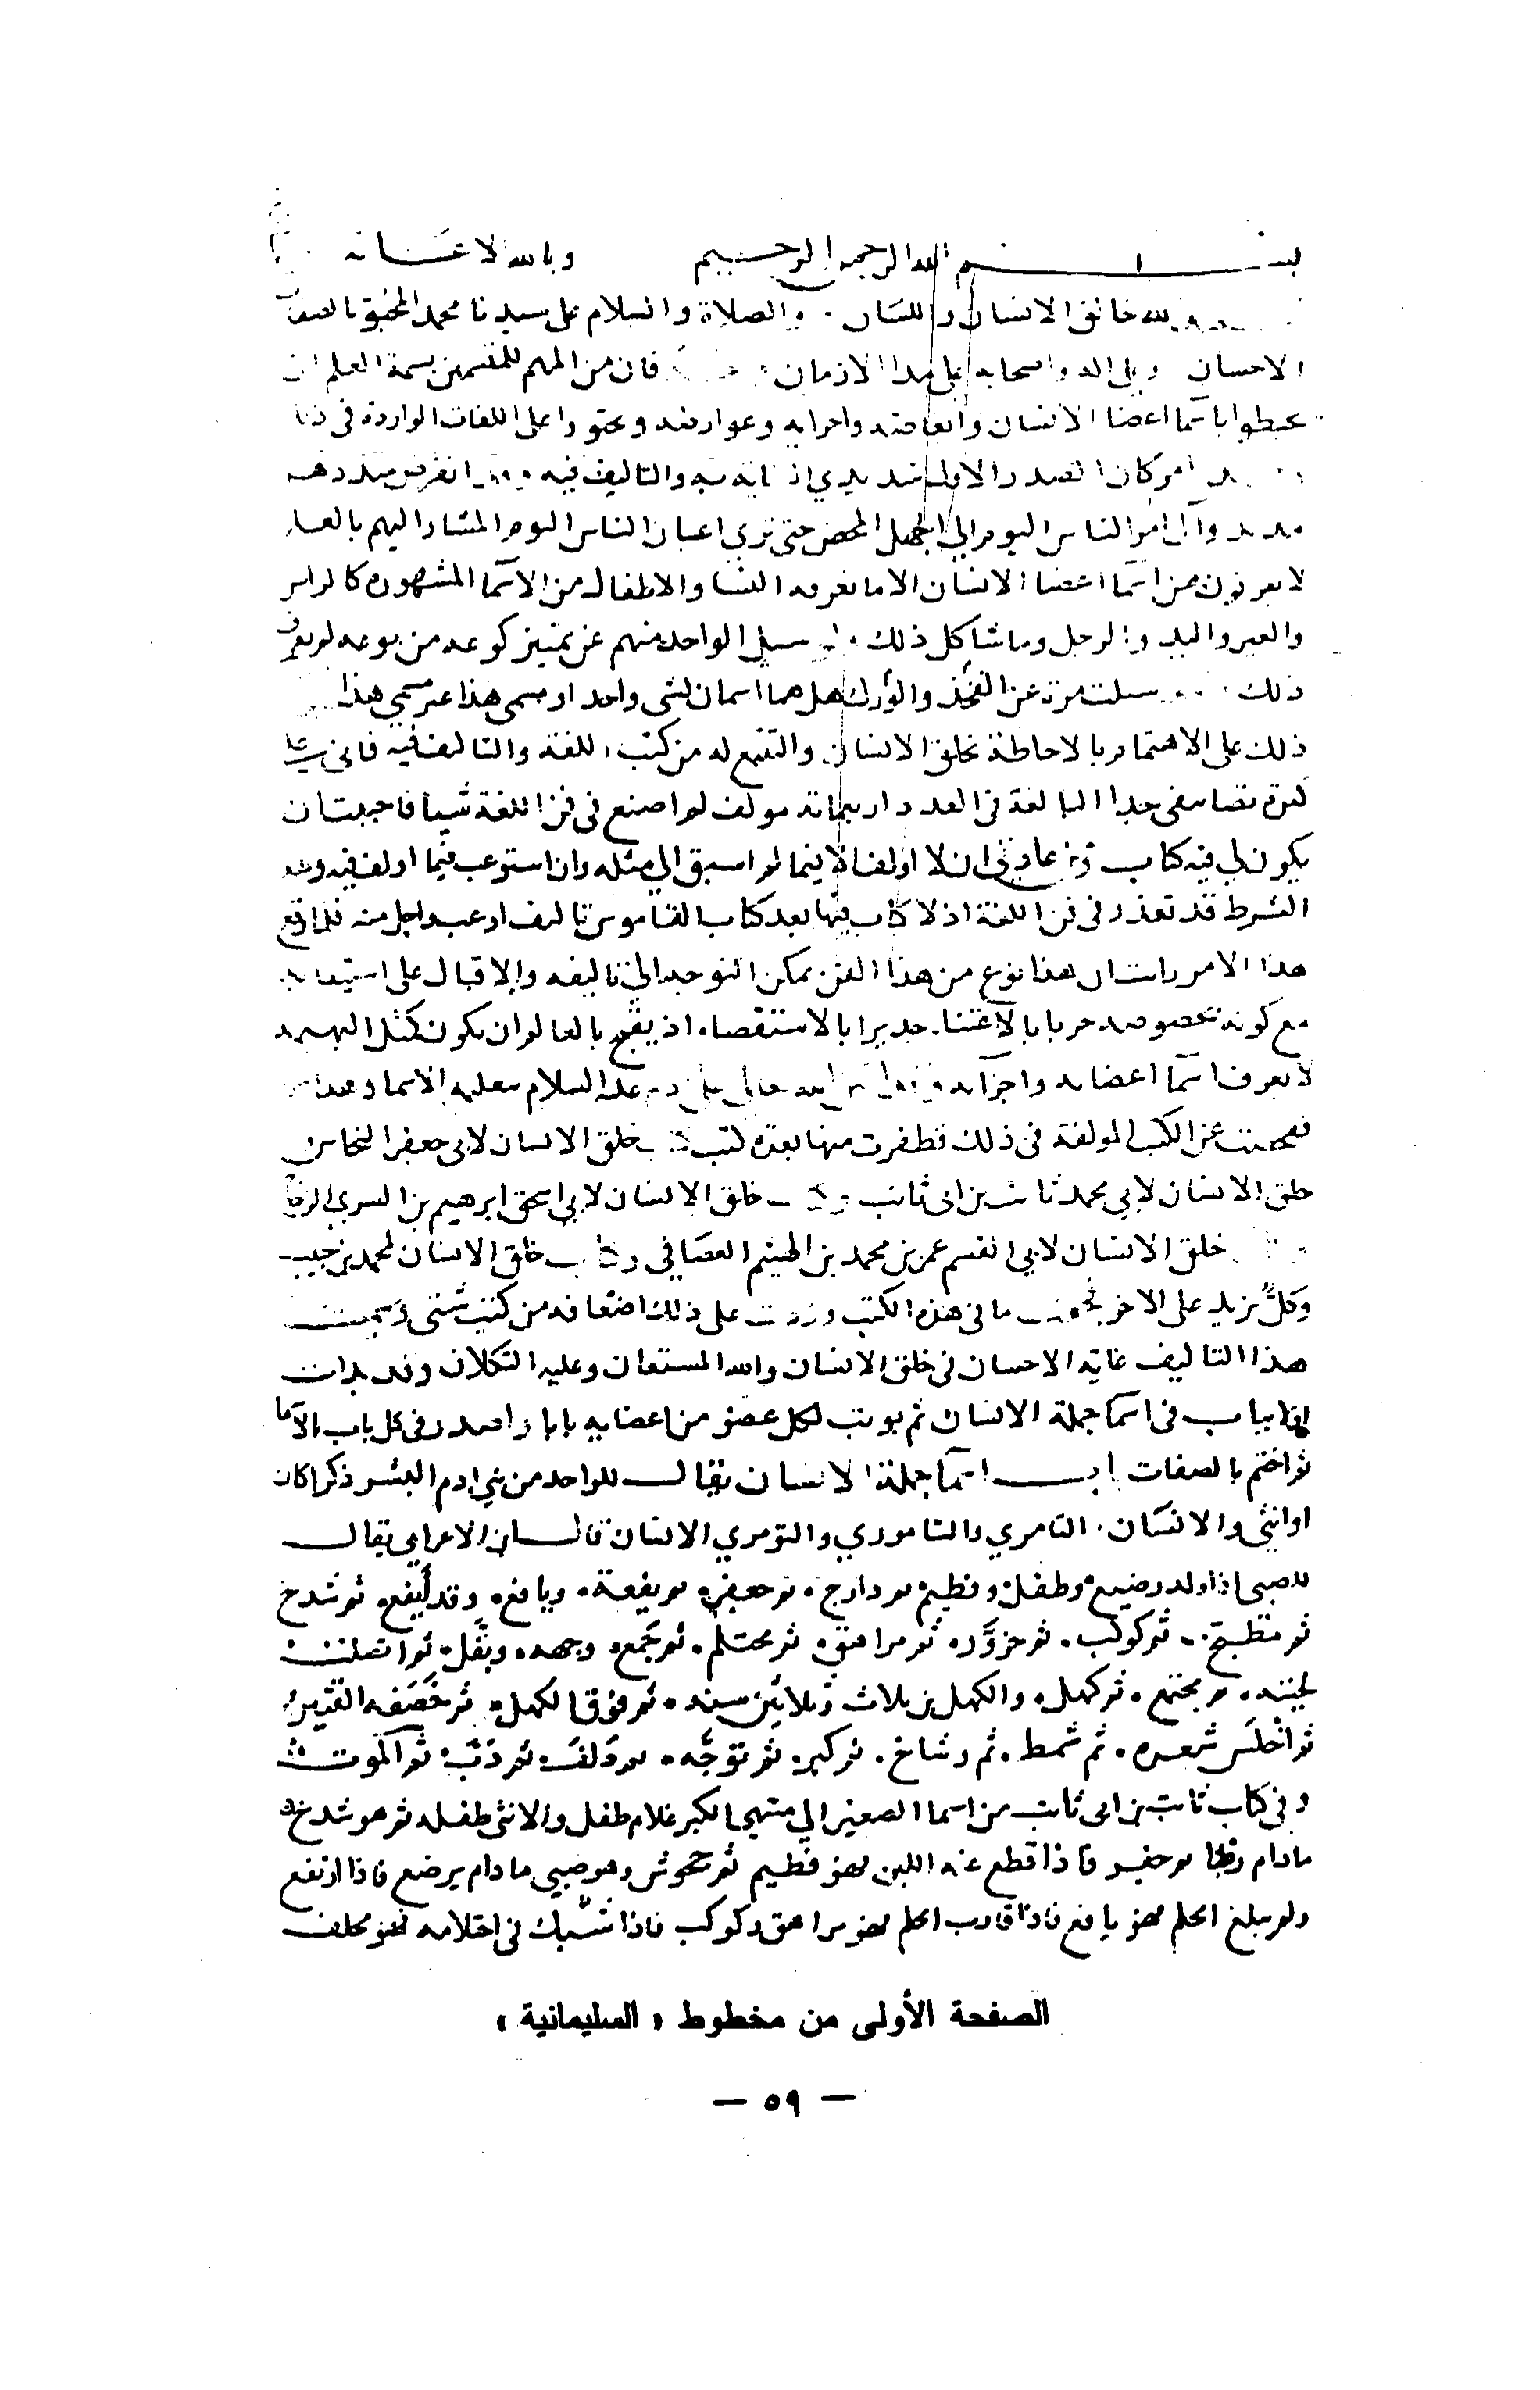 بسم الله الرحمن الرحيم وبالله الاعانه
لله خالق الانسان واللسان . والصلاة والسلام على سيدنا محمد
الاحسان وعلى اله واصحابه على مدا الازمان فان من المهم للمتسمين بسمة العلم ان
يحيطوا باسما اعضا الانسان وابعاضه واجزايه وعوارضه ويحتووا على اللغات الواردة في ذلك
كان الصدر الاول شديدي والتاليف فيه انقرض
وآل امر الناس اليوم الي الجهل المحض حتى تري اعيان الناس اليوم المشار اليهم بالعلم
لا يعرفون من اسما اعضا الانسان الا ما تعرفه النسا والاطفال من الاسما المشهورة كالراس
والعين واليد والرجل وما شاكل ذلك سيل الواحد منهم عن تمييز كوعه من بوعه لم يعرف
ذلك سيلت مرة عن الفخذ والورك هل هما اسمان لشي واحد او مسمى هذا غير مسمى هذا
ذلك على الاهتمام بالاحاطة بخلق الانسان والتتبع له من كتب اللغة والتاليف فيه فاني
كثرة تصانيفي جدا البالغة في العدد اربعماية مولف لم اصنع في فن اللغة شيا فاحببت ان
يكون لي فيه كتاب عادتي ان لا اولف الا فيما لم اسبق الي مثله وان استوعب فيما اولف فيه
الشرط قد تعذر في فن اللغة اذ لا كتاب فيها بعد كتاب القاموس تاليف اوعب واجل منه فلما وقع
هذا الامر رايت ان هذا نوع من هذا الفن يمكن التوجه الي تاليفه والاقبال على استيعابه
مع كونه بخصوصه حريا بالاعتنا جديرا بالاستقصاء اذ يقبح بالعالم ان يكون كمثل البهيمة
لا يعرف اسما اعضايه واجزآيه عليه السلام بتعليمه الاسما
ففحصت عن الكتب المولفة في ذلك فظفرت منها بعدة كتب خلق الانسان لابي جعفر النحاس
خلق الانسان لابي محمد ثابت بن ابي ثابت خلق الانسان لابي اسحق ابرهيم بن السري الزجاج
خلق الانسان لابي القسم عمر بن محمد بن الهيثم وكتاب خلق الانسان لمحمد بن حبيب
وكلٌّ يزيد على الاخر فجمعت ما في هذه الكتب وزدت على ذلك اضعافه من كتب شتى وسميت
هذا التاليف غاية الاحسان في خلق الانسان والله المستعان وعليه التكلان وقد بدات
بباب في اسما جملة الانسان ثم بوبت لكل عضو من اعضايه بابا واصدر في كل باب الاسما
ثم اختم بالصفات باب اسما جملة الانسان يقال للواحد من بني ادم البشر ذكرا كان
او انثي والانسان . التامري والتاموري والتومري الانسان قال ابن الاعرابي يقال
للصبي اذا ولد رضيع وطفل وفطيم ثم دارج . ثم جفر . ثم يفعة . ويافع . وقد أيفع . ثم شدخ
ثم مطبخ . ثم كوكب . ثم حزوّر . ثم مراهق . ثم محتلم . ثم ثم اتصلت
لحيته . ثم مجتمع . ثم كهل . والكهل بن ثلاث وثلاثين سنه . ثم فوق الكهل . ثم خصّفه القتير
ثم اخلس شعره . ثم شمط . ثم شاخ . ثم كبر . ثم توجّه . ثم دلف . ثم دبّ . ثم الموت
وفي كتاب ثابت بن ابي ثابت من اسما الصغير الي منتهى الكبر غلام طفل والانثى طفله ثم هو شدخ
مادام رطبا ثم جفر فاذا قطع عنه اللبن فهو فطيم ثم جحوش وهو صبي مادام يرضع فاذا ارتفع
ولم يبلغ الحلم فهو يافع فاذا قارب الحلم فهو مراهق وكوكب فاذا شُك في احتلامه فهو محلف
الصفحة الأولى من مخطوط « السليمانية »
— ٥٩ —